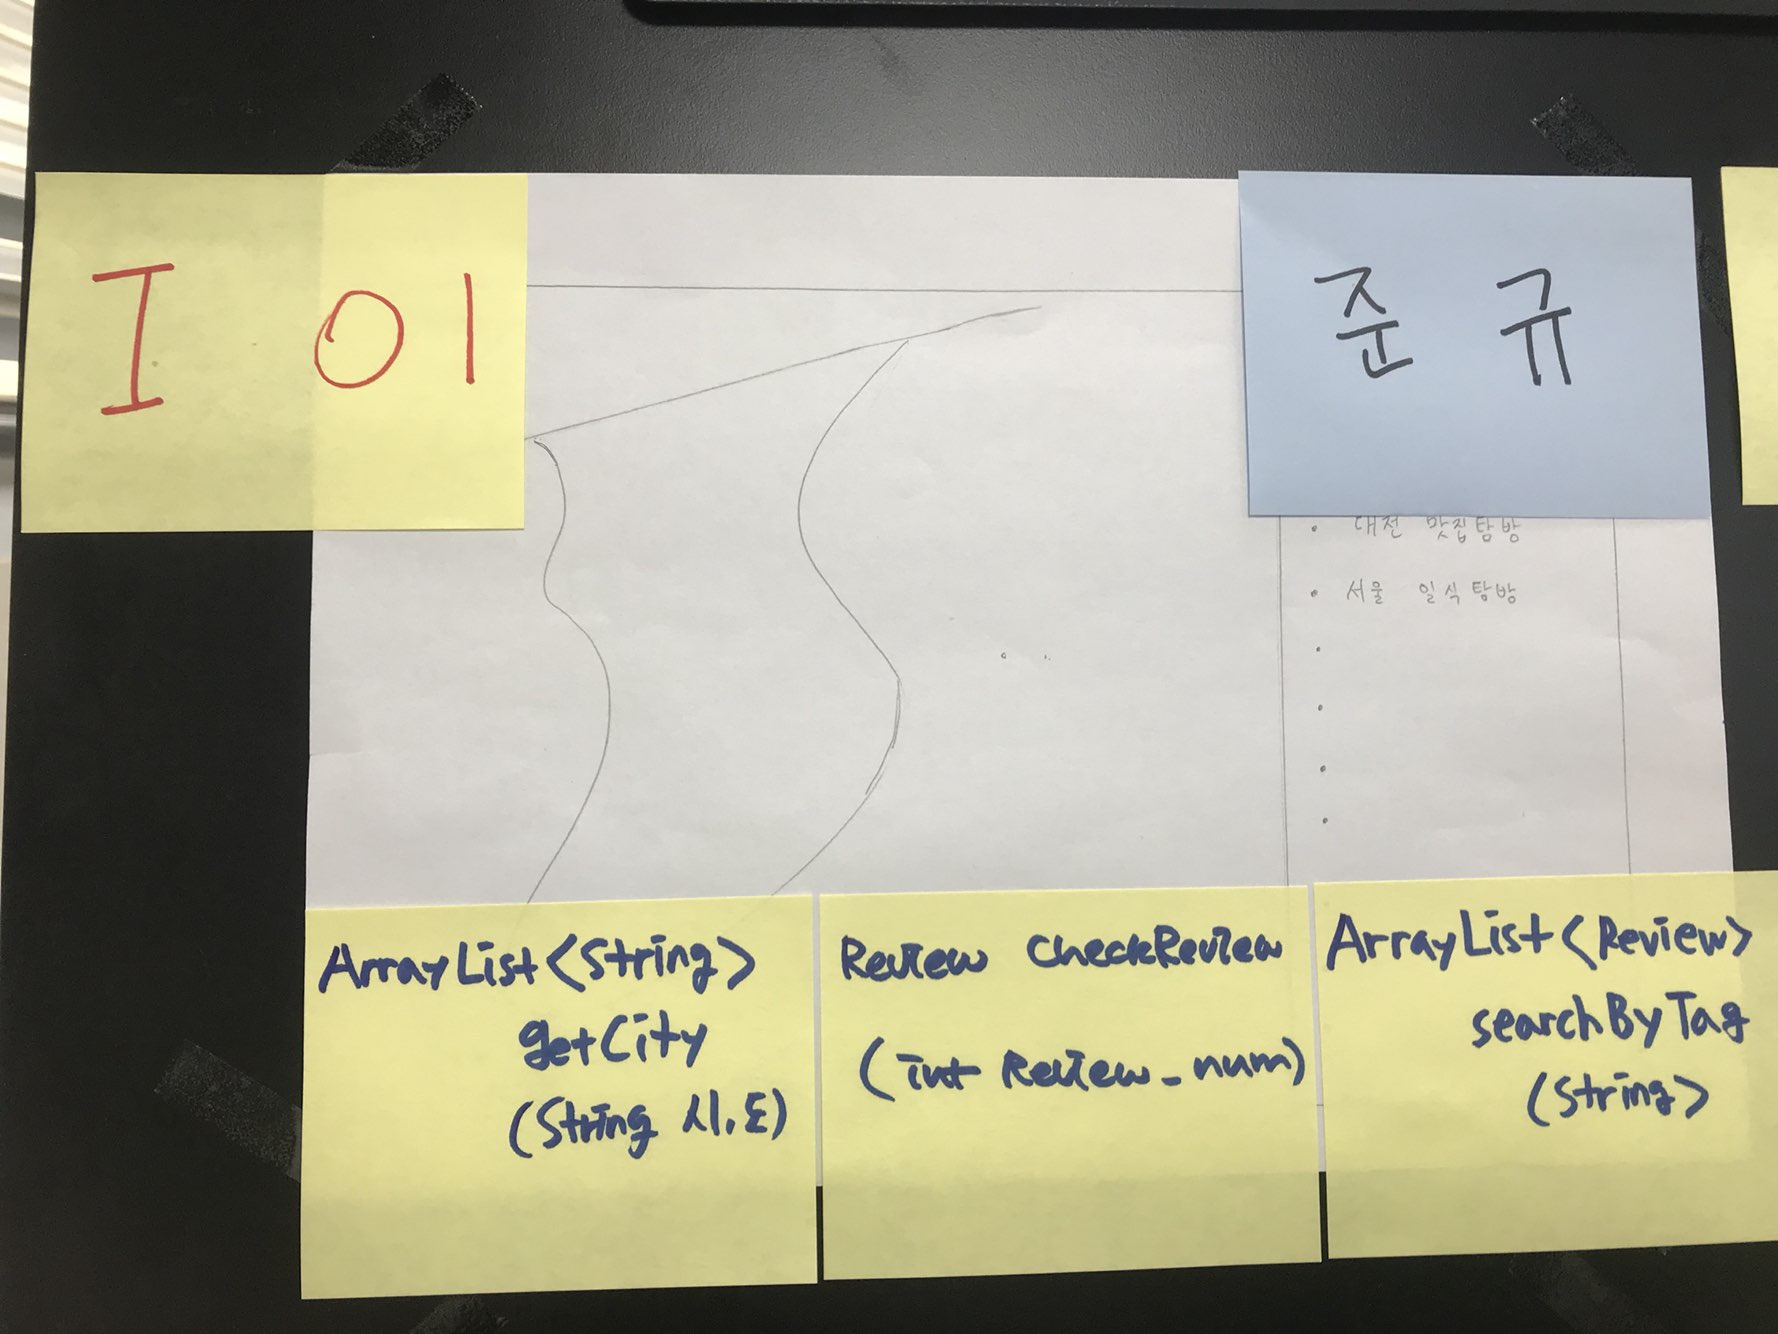 I 01
준 규
· 대전 맛집탐방
· 서울 일식탐방
ArrayList<String>
getCity
(String 시,도)
Review CheckReview
(int Review_num)
ArrayList<Review>
searchByTag
(String>